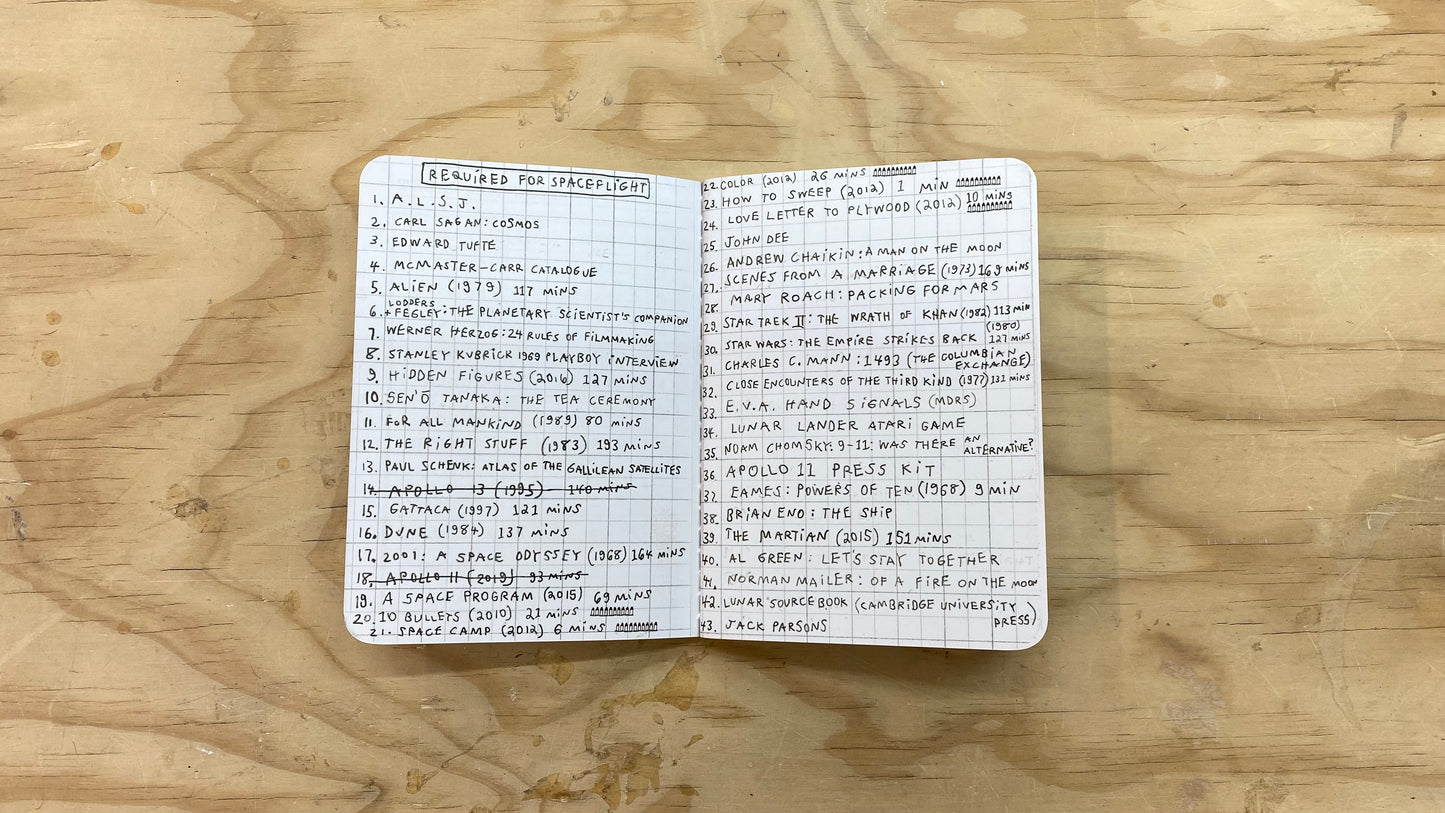 REQUIRED FOR SPACEFLIGHT
1. A.L.S.J.
2. CARL SAGAN: COSMOS
3. EDWARD TUFTE
4. MCMASTER-CARR CATALOGUE
5. ALIEN (1979) 117 MINS
6. LODDERS + FEGLEY: THE PLANETARY SCIENTIST'S COMPANION
7. WERNER HERZOG: 24 RULES OF FILMMAKING
8. STANLEY KUBRICK 1969 PLAYBOY INTERVIEW
9. HIDDEN FIGURES (2016) 127 MINS
10. SEN'Ō TANAKA: THE TEA CEREMONY
11. FOR ALL MANKIND (1989) 80 MINS
12. THE RIGHT STUFF (1983) 193 MINS
13. PAUL SCHENK: ATLAS OF THE GALLILEAN SATELLITES
14. APOLLO 13 (1995) - 140 MINS
15. GATTACA (1997) 121 MINS
16. DUNE (1984) 137 MINS
17. 2001: A SPACE ODYSSEY (1968) 164 MINS
18. APOLLO 11 (2019) 93 MINS
19. A SPACE PROGRAM (2015) 69 MINS
20. 10 BULLETS (2010) 21 MINS
21. SPACE CAMP (2012) 6 MINS
22. COLOR (2012) 26 MINS
23. HOW TO SWEEP (2012) 1 MIN
24. LOVE LETTER TO PLYWOOD (2012) 10 MINS
25. JOHN DEE
26. ANDREW CHAIKIN: A MAN ON THE MOON
27. SCENES FROM A MARRIAGE (1973) 169 MINS
28. MARY ROACH: PACKING FOR MARS
29. STAR TREK II: THE WRATH OF KHAN (1982) 113 MIN
30. STAR WARS: THE EMPIRE STRIKES BACK (1980) 127 MINS
31. CHARLES C. MANN: 1493 (THE COLUMBIAN EXCHANGE)
32. CLOSE ENCOUNTERS OF THE THIRD KIND (1977) 131 MINS
33. E.V.A. HAND SIGNALS (MDRS)
34. LUNAR LANDER ATARI GAME
35. NOAM CHOMSKY: 9-11: WAS THERE AN ALTERNATIVE?
36. APOLLO 11 PRESS KIT
37. EAMES: POWERS OF TEN (1968) 9 MIN
38. BRIAN ENO: THE SHIP
39. THE MARTIAN (2015) 151 MINS
40. AL GREEN: LET'S STAY TOGETHER
41. NORMAN MAILER: OF A FIRE ON THE MOON
42. LUNAR SOURCEBOOK (CAMBRIDGE UNIVERSITY PRESS)
43. JACK PARSONS